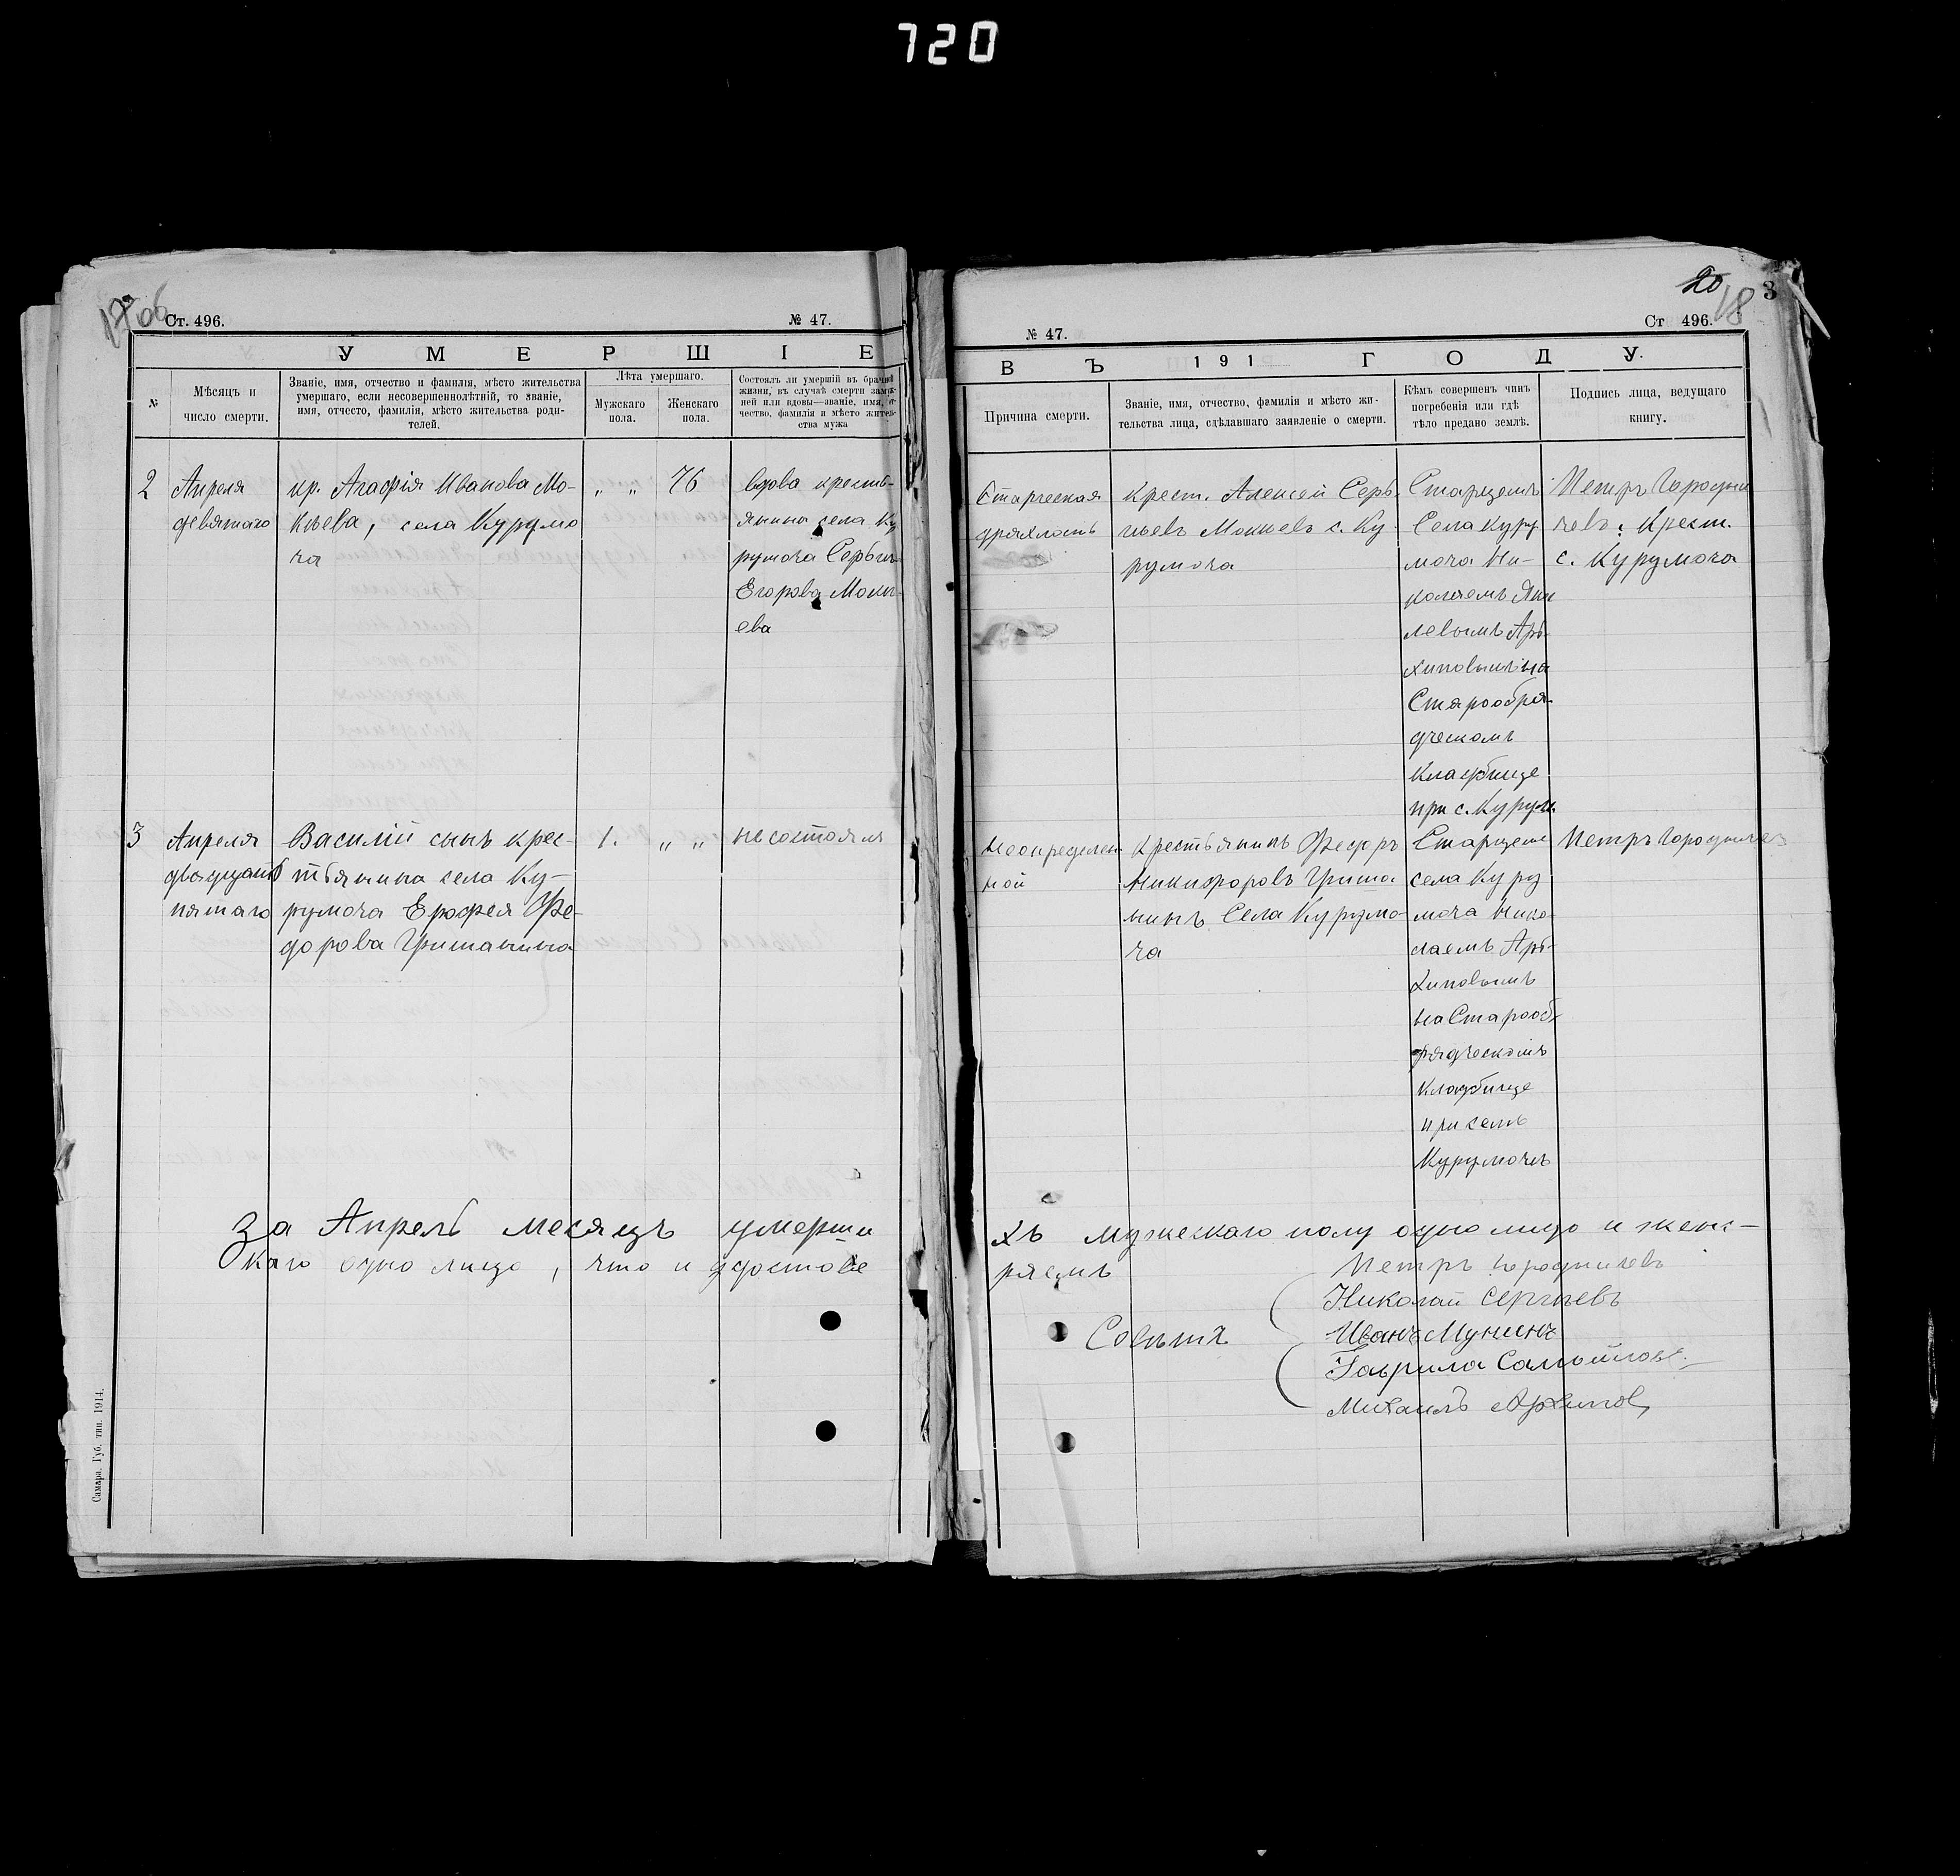 720
Ст. 496.
№ 47.
У М Е Р Ш І Е
№
Мѣсяцъ и
число смерти.
Званіе, имя, отчество и фамилія, мѣсто жительства
умершаго, если несовершеннолѣтній, то званіе,
имя, отчесто, фамилія, мѣсто жительства роди-
телей.
Лѣта умершаго.
Мужскаго
пола.
Женскаго
пола.
Состоялъ ли умершій въ брачной
жизни, въ случаѣ смерти замуж-
ней или вдовы—званіе, имя, от-
чество, фамилія и мѣсто житель-
ства мужа
2
Апреля
девятаго
кр. Агафія Иванова Мо-
кѣева, села Курумо
ча
„ „
76
вдова кресть-
янина села Ку
румоча
Егорова Моки-
ева
3
Апреля
двадцать
пятаго
Василій сынъ крес-
тьянина села Ку-
румоча Ерофея Фе-
дорова Гришанина
1.
„ „
не состоялъ
За Апрель месяцъ умерши
каго одно лицо, что и удостове
Самара. Губ. тип. 1914.
20
18
3
№ 47.
Ст 496.
В Ъ 191 Г О Д У.
Причина смерти.
Званіе, имя, отчество, фамилія и мѣсто жи-
тельства лица, сдѣлавшаго заявленіе о смерти.
Кѣмъ совершенъ чинъ
погребенія или гдѣ
тѣло предано землѣ.
Подпись лица, ведущаго
книгу.
Старческая
дряхлость
Крест. Алексей Серъ
гѣевъ Мокиевъ с. Ку-
румоча
Старцемъ
Села Куру
моча Ни-
колаемъ
левымъ Арь-
хиповымъ на
Старообря-
дческомъ
Кладбище
при с. Курум.
Петръ Городни
чевъ: Крест.
с. Курумоча
Неопределен
ной
Крестьянинъ Федръ
Никифоровъ Гриша
нинъ Села Курумо-
ча
Старцемъ
села Куру
моча Нико-
лаемъ Арь-
хиповымъ
на Старооб-
рядческомъ
Кладбище
при селе
Курумоче
Петръ Городничев
хъ мужескаго полу одно лицо и женс-
ряемъ
Петръ Городничевъ
Николай Сергѣевъ
Совѣтъ
Иванъ Мунинъ
Гаврила Самойлов
Михаилъ Архипов